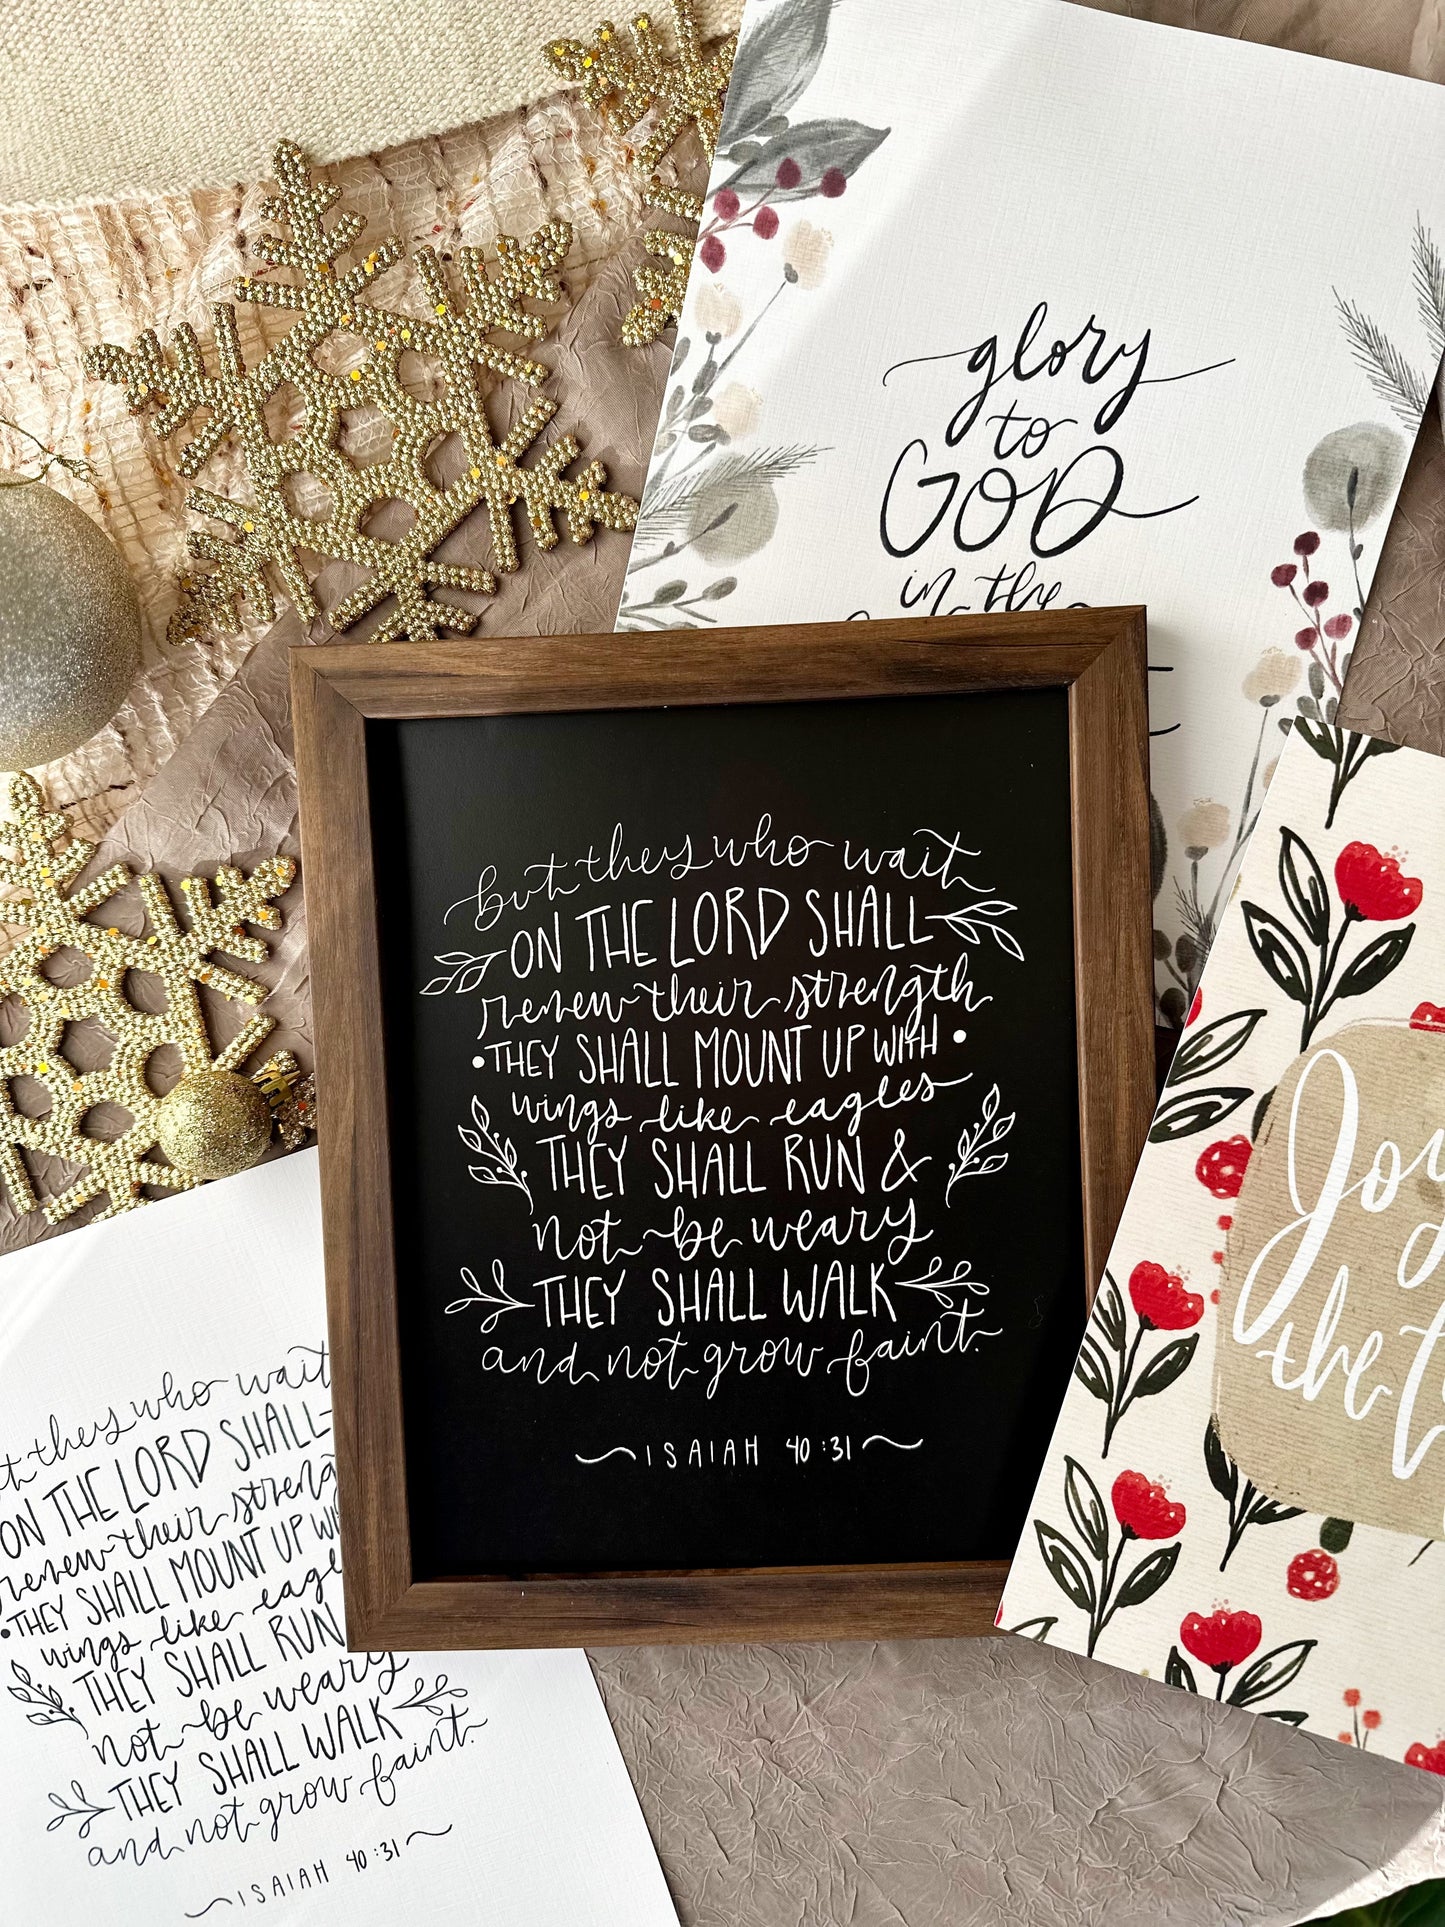 glory
to
GOD
in the
but they who wait
ON THE LORD SHALL
renew their strength
•THEY SHALL MOUNT UP WITH•
wings like eagles
THEY SHALL RUN &
not be weary
THEY SHALL WALK
and not grow faint.
ISAIAH 40:31
Joy
the
they who wait
ON THE LORD SHALL
renew their
•THEY SHALL MOUNT UP
wings like
THEY SHALL RUN
not be weary
THEY SHALL WALK
and not grow faint.
ISAIAH 40:31